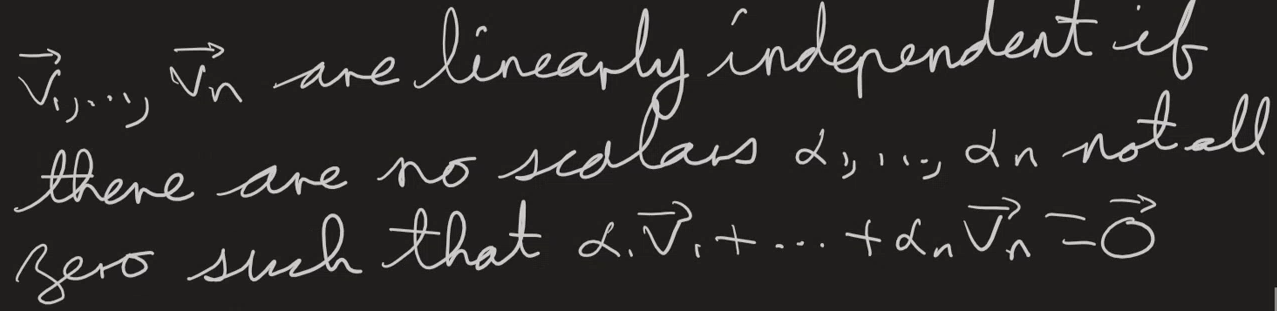 v⃗₁,..., v⃗ₙ are linearly independent if
there are no scalars α₁,..., αₙ not all
zero such that α₁v⃗₁+...+αₙv⃗ₙ=0⃗